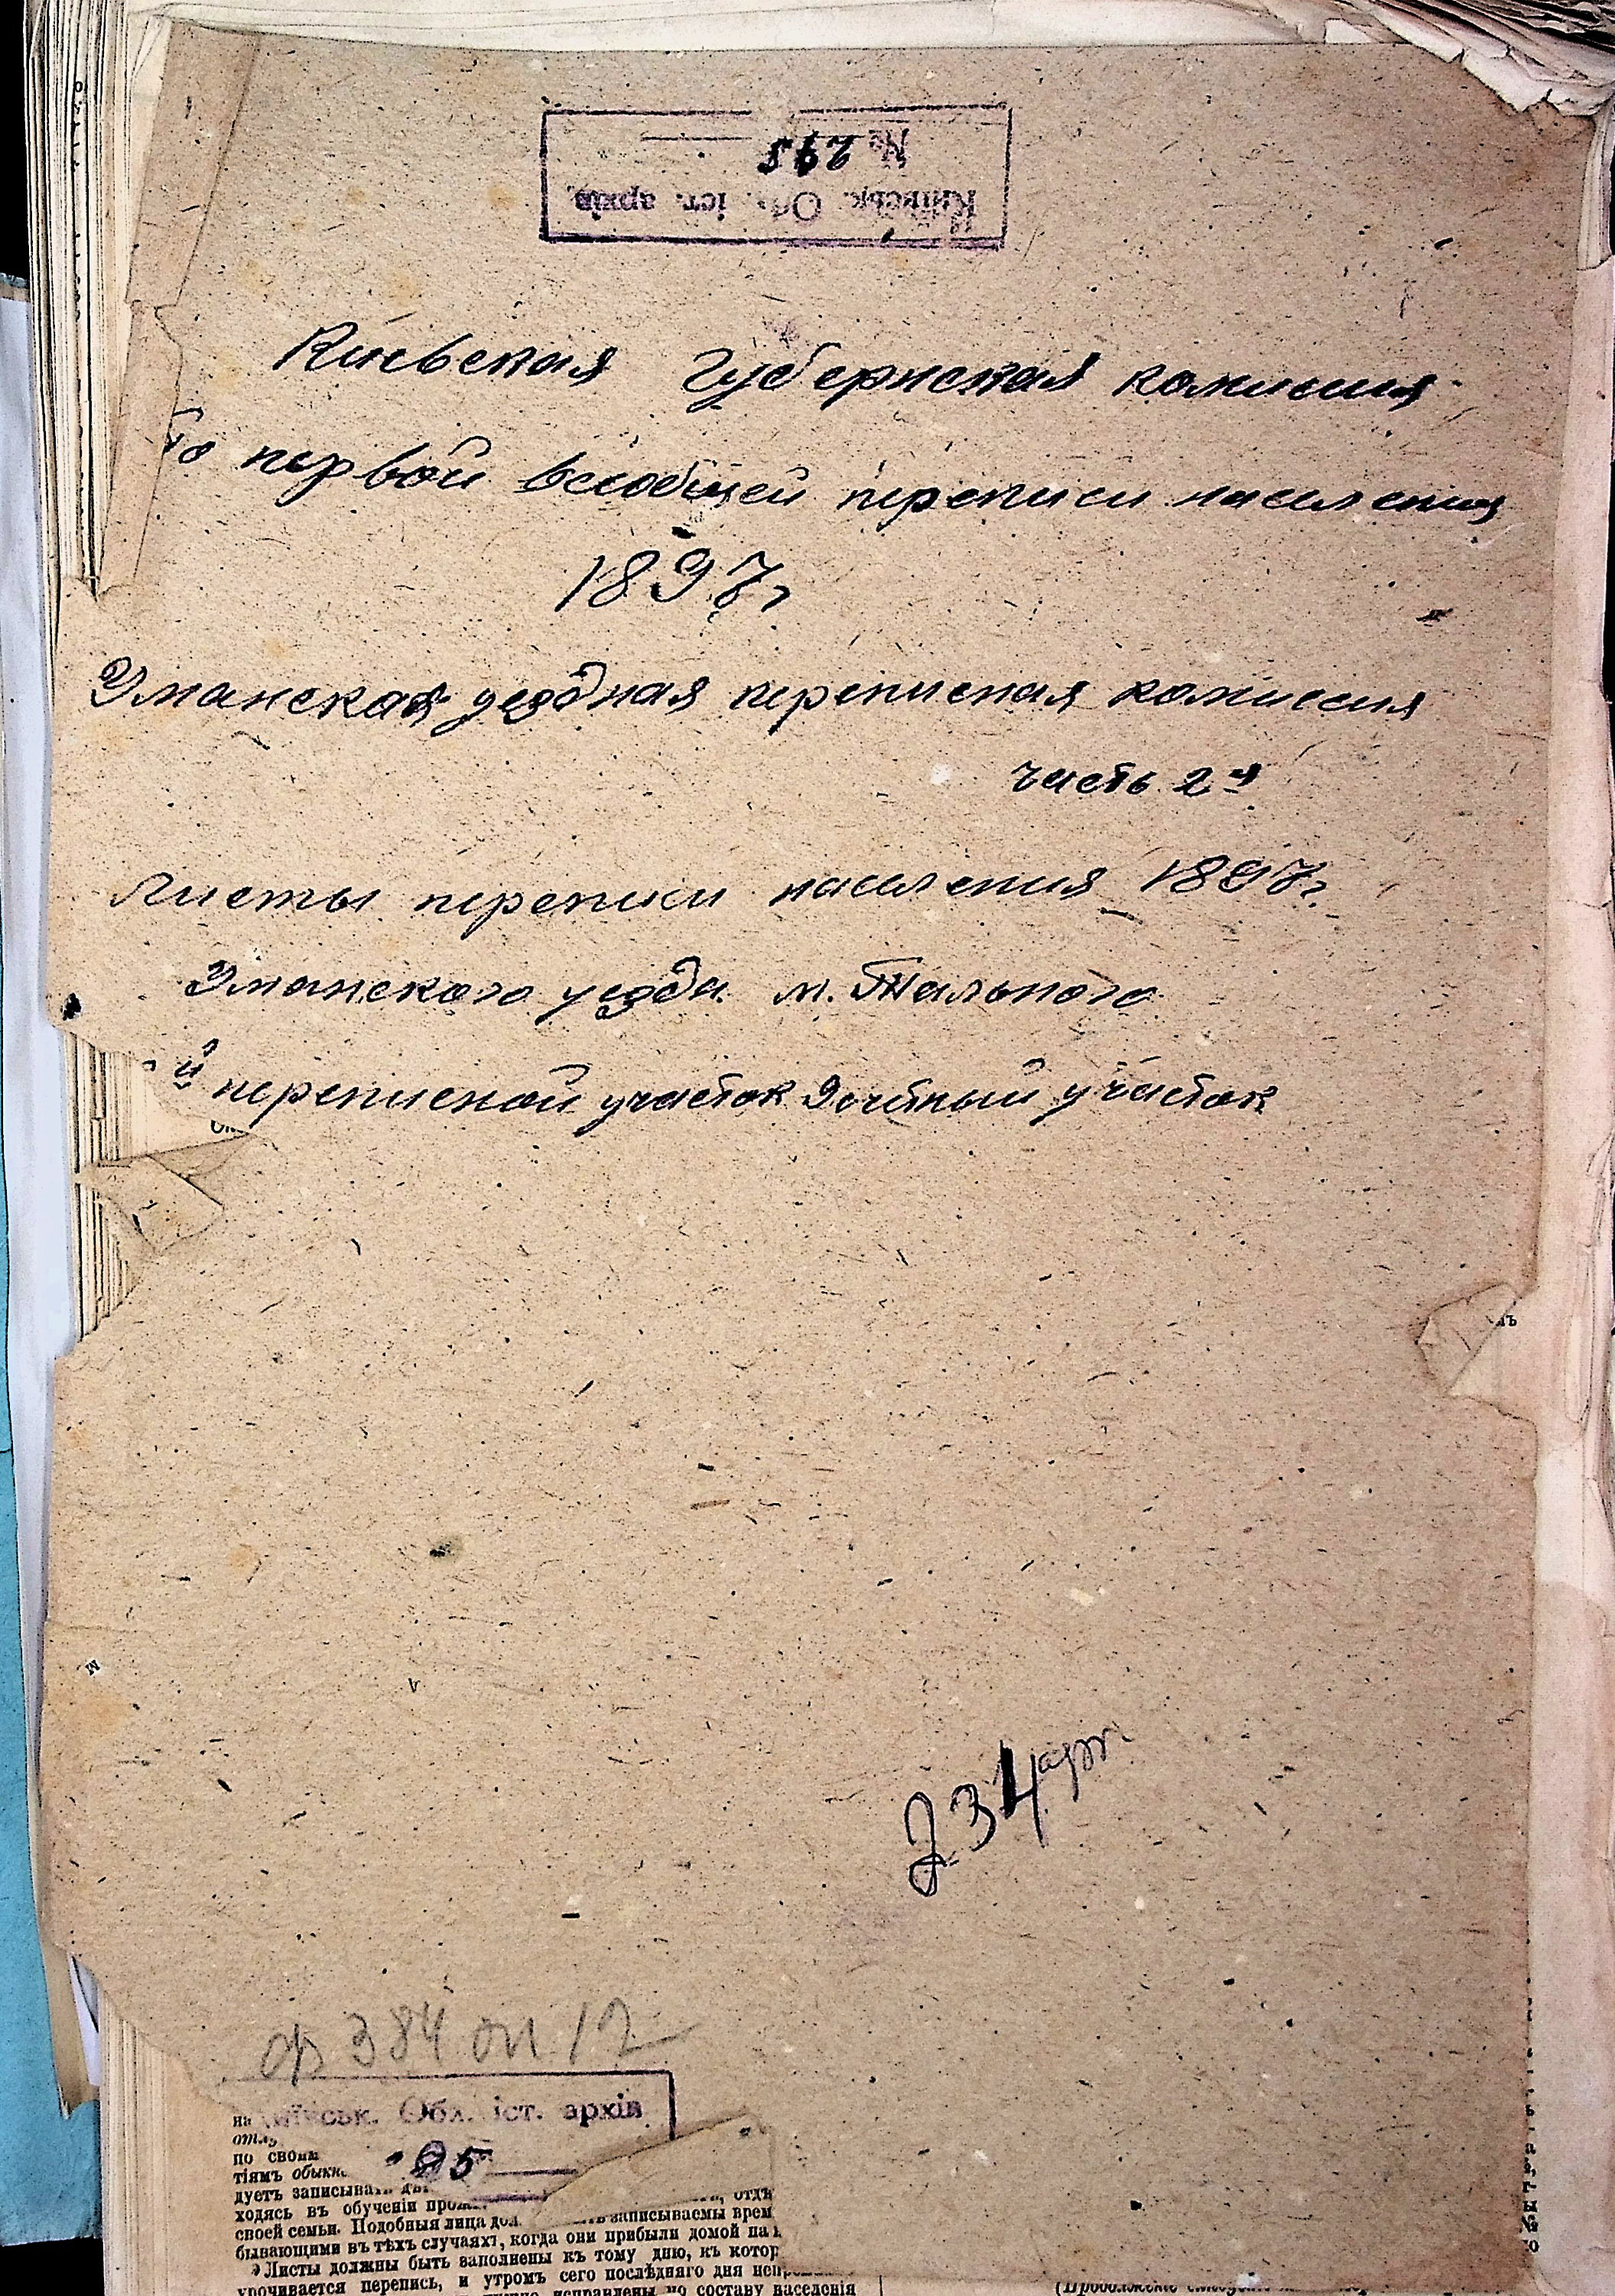 Київськ. Обл. іст. архів
№
Киевская губернская комиссия
по первой всеобщей переписи населения
1897г
Уманская уездная переписная комиссия
часть 2я
Листы переписи населения 1897г.
Уманского уезда м. Тального
й переписной участок 9 счетный участок
234 арк.
ф 384 оп 12
Київськ. Обл. іст. архів
95
на
отлу
по своим
тіямъ обыкно
дуетъ записывать
ходясь въ обученіи отдѣ
своей семьи. Подобныя лица записываемы врем
бывающими въ тѣхъ случаяхъ, когда они прибыли домой на
Листы должны быть заполнены къ тому дню, къ котор
урочивается перепись, и утромъ сего послѣдняго дня
исправлены по составу населенія